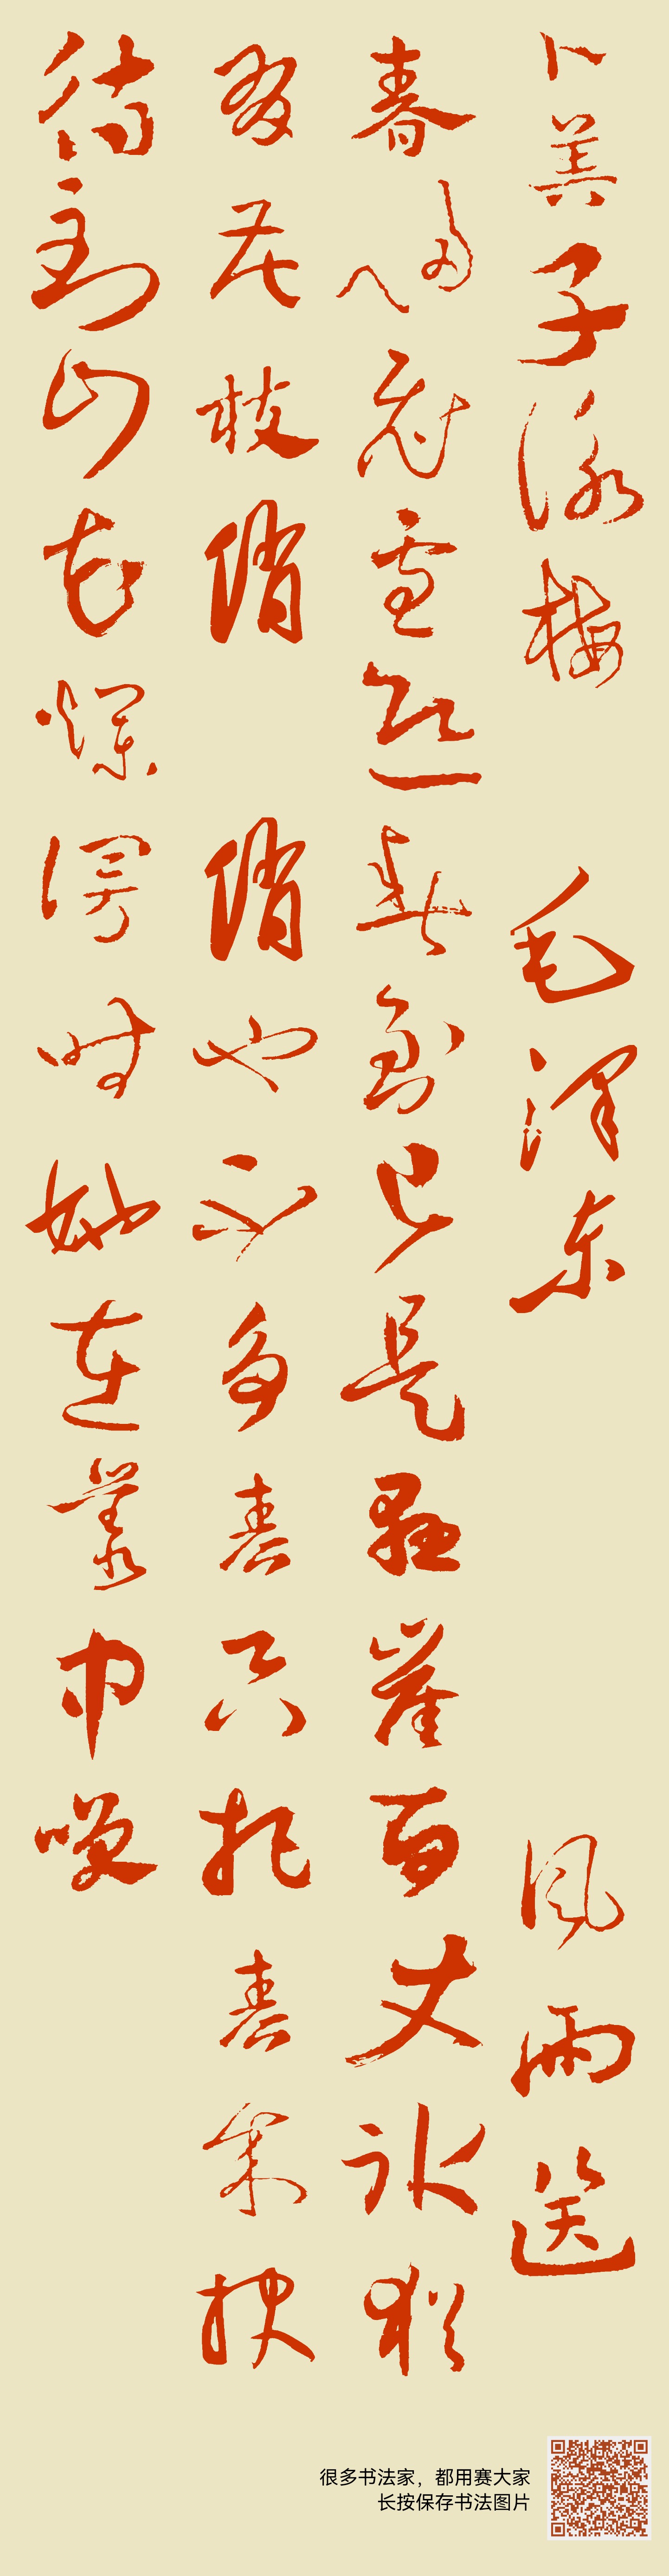 卜算子詠梅 毛澤東 風雨送
春歸飛雪迎春到已是懸崖百丈冰猶
有花枝俏 俏也不爭春只把春來報
待到山花爛漫時她在叢中笑
很多书法家，都用赛大家
长按保存书法图片